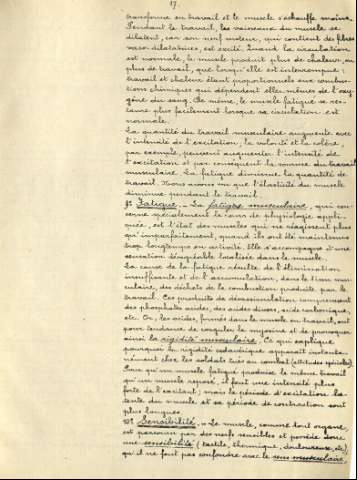 17.
transforme en travail et le muscle s'échauffe moins.
Pendant le travail, les vaisseaux du muscle se
dilatent, car son nerf moteur, qui contient des fibres
vaso-dilatatrices, est excité. Quand la circulation
est normale, le muscle produit plus de chaleur, ou
plus de travail, que lorsqu'elle est interrompue :
travail et chaleur étant proportionnels aux combus-
tions chimiques qui dépendent elles-mêmes de l'oxy-
gène du sang. De même, le muscle fatigué se res-
taure plus facilement lorsque sa circulation est
normale.
La quantité du travail musculaire augmente avec
l'intensité de l'excitation, la volonté et la colère,
par exemple, peuvent augmenter l'intensité de
l'excitation et par conséquent la somme du travail
musculaire. La fatigue diminue la quantité de
travail. Nous avons vu que l'élasticité du muscle
diminue pendant le travail.
9° Fatigue. - La fatigue musculaire, qui con-
cerne spécialement le cours de physiologie appli-
quée, est l'état des muscles qui ne réagissent plus
qu'imparfaitement, quand ils ont été maintenus
trop longtemps en activité. Elle s'accompagne d'une
sensation désagréable localisée dans le muscle.
La cause de la fatigue résulte de l'élimination
insuffisante et de l'accumulation, dans le tissu mus-
culaire, des déchets de la combustion produite par le
travail. Ces produits de désassimilation comprennent
des phosphates acides, des acides divers, acide carbonique,
etc. Or, les acides, formés dans le muscle au travail, ont
pour tendance de coaguler la myosine et de provoquer
ainsi la rigidité musculaire. Ce qui explique
pourquoi la rigidité cadavérique apparait instanta-
nément chez les soldats tués au combat (attitudes spéciales).
Pour qu'un muscle fatigué produise le même travail
qu'un muscle reposé, il faut une intensité plus
forte de l'excitant ; mais la période d'excitation la-
tente du muscle et sa période de contraction sont
plus longues.
10° Sensibilité. - Le muscle, comme tout organe,
est parcouru par des nerfs sensibles et possède donc
une sensibilité (tactile, thermique, douloureuse, etc),
qu'il ne faut pas confondre avec le sens musculaire,